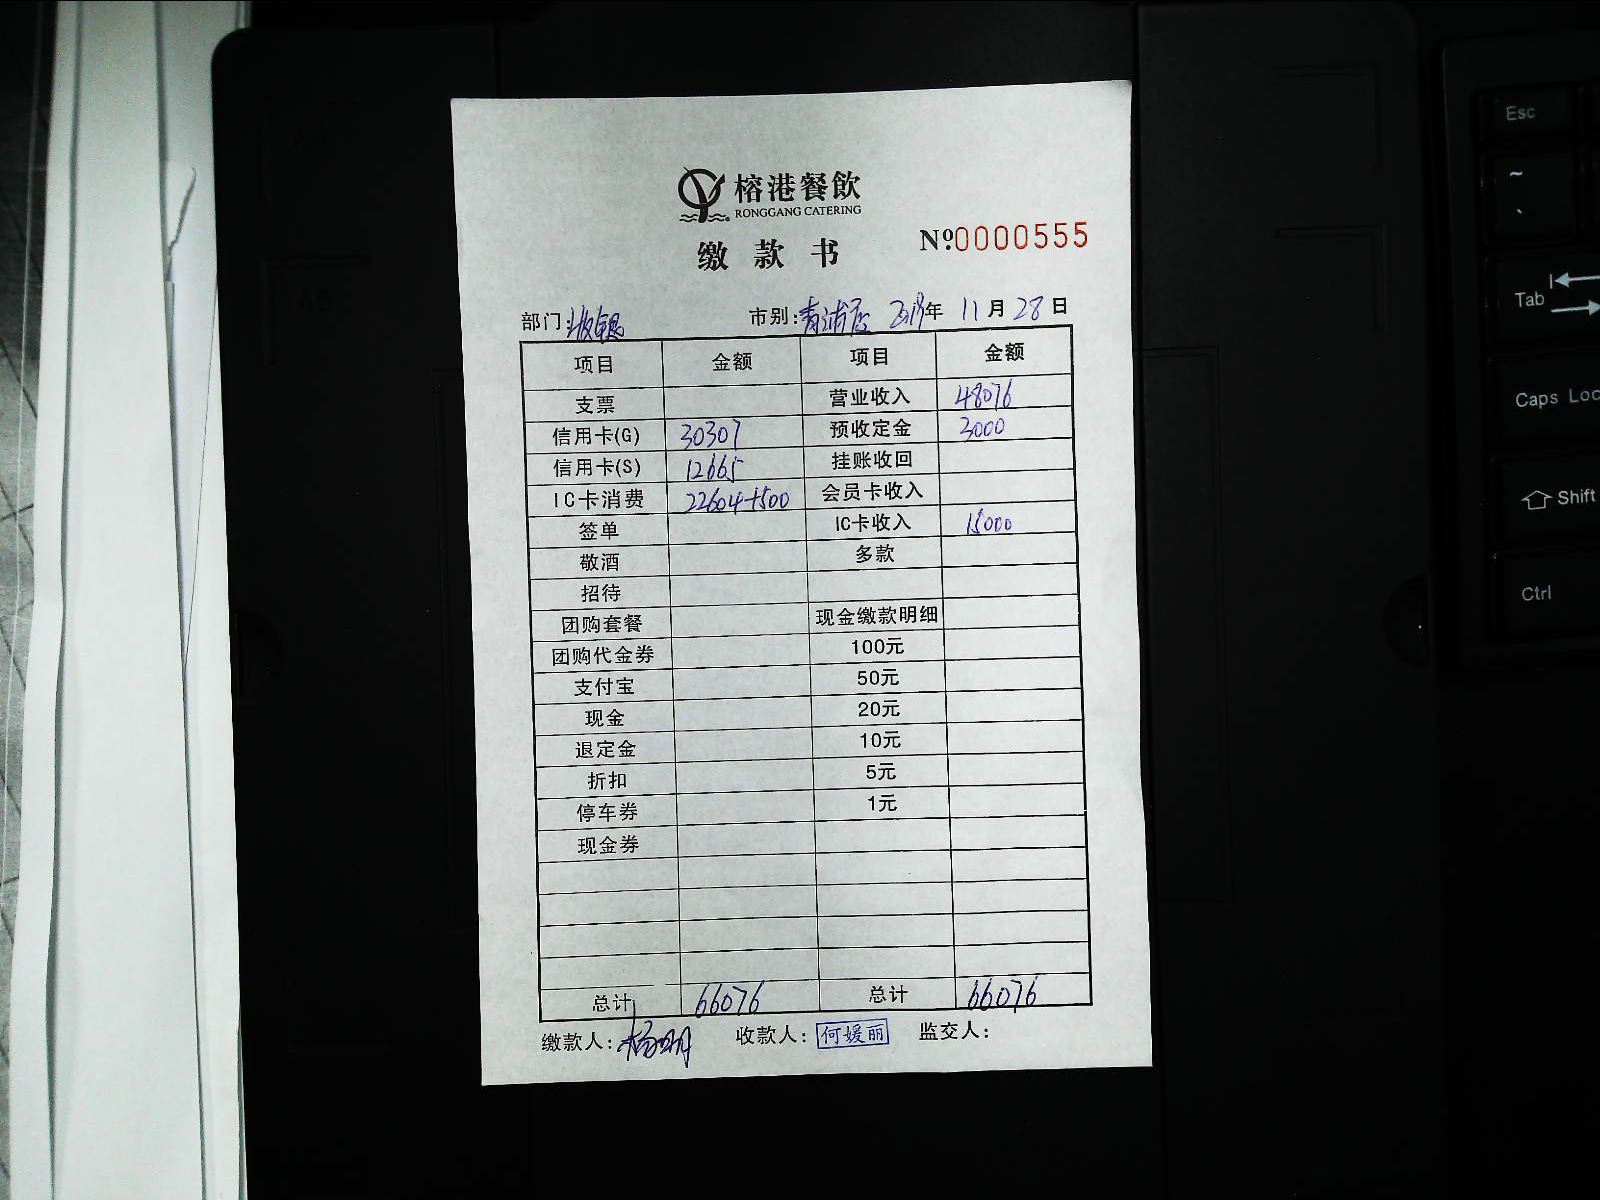 榕港餐飲
RONGGANG CATERING
缴款书 №0000555
部门:收银 市别:青浦店 年 11月28日
项目 金额 项目 金额
支票 营业收入 48076
信用卡(G) 30307 预收定金 3000
信用卡(S) 12665 挂账收回
IC卡消费 22604+500 会员卡收入
签单 IC卡收入 15000
敬酒 多款
招待
团购套餐 现金缴款明细
团购代金券 100元
支付宝 50元
现金 20元
退定金 10元
折扣 5元
停车券 1元
现金券
总计 66076 总计 66076
缴款人: 收款人:何媛丽 监交人:
Esc
~
`
Tab
Caps Loc
Shift
Ctrl